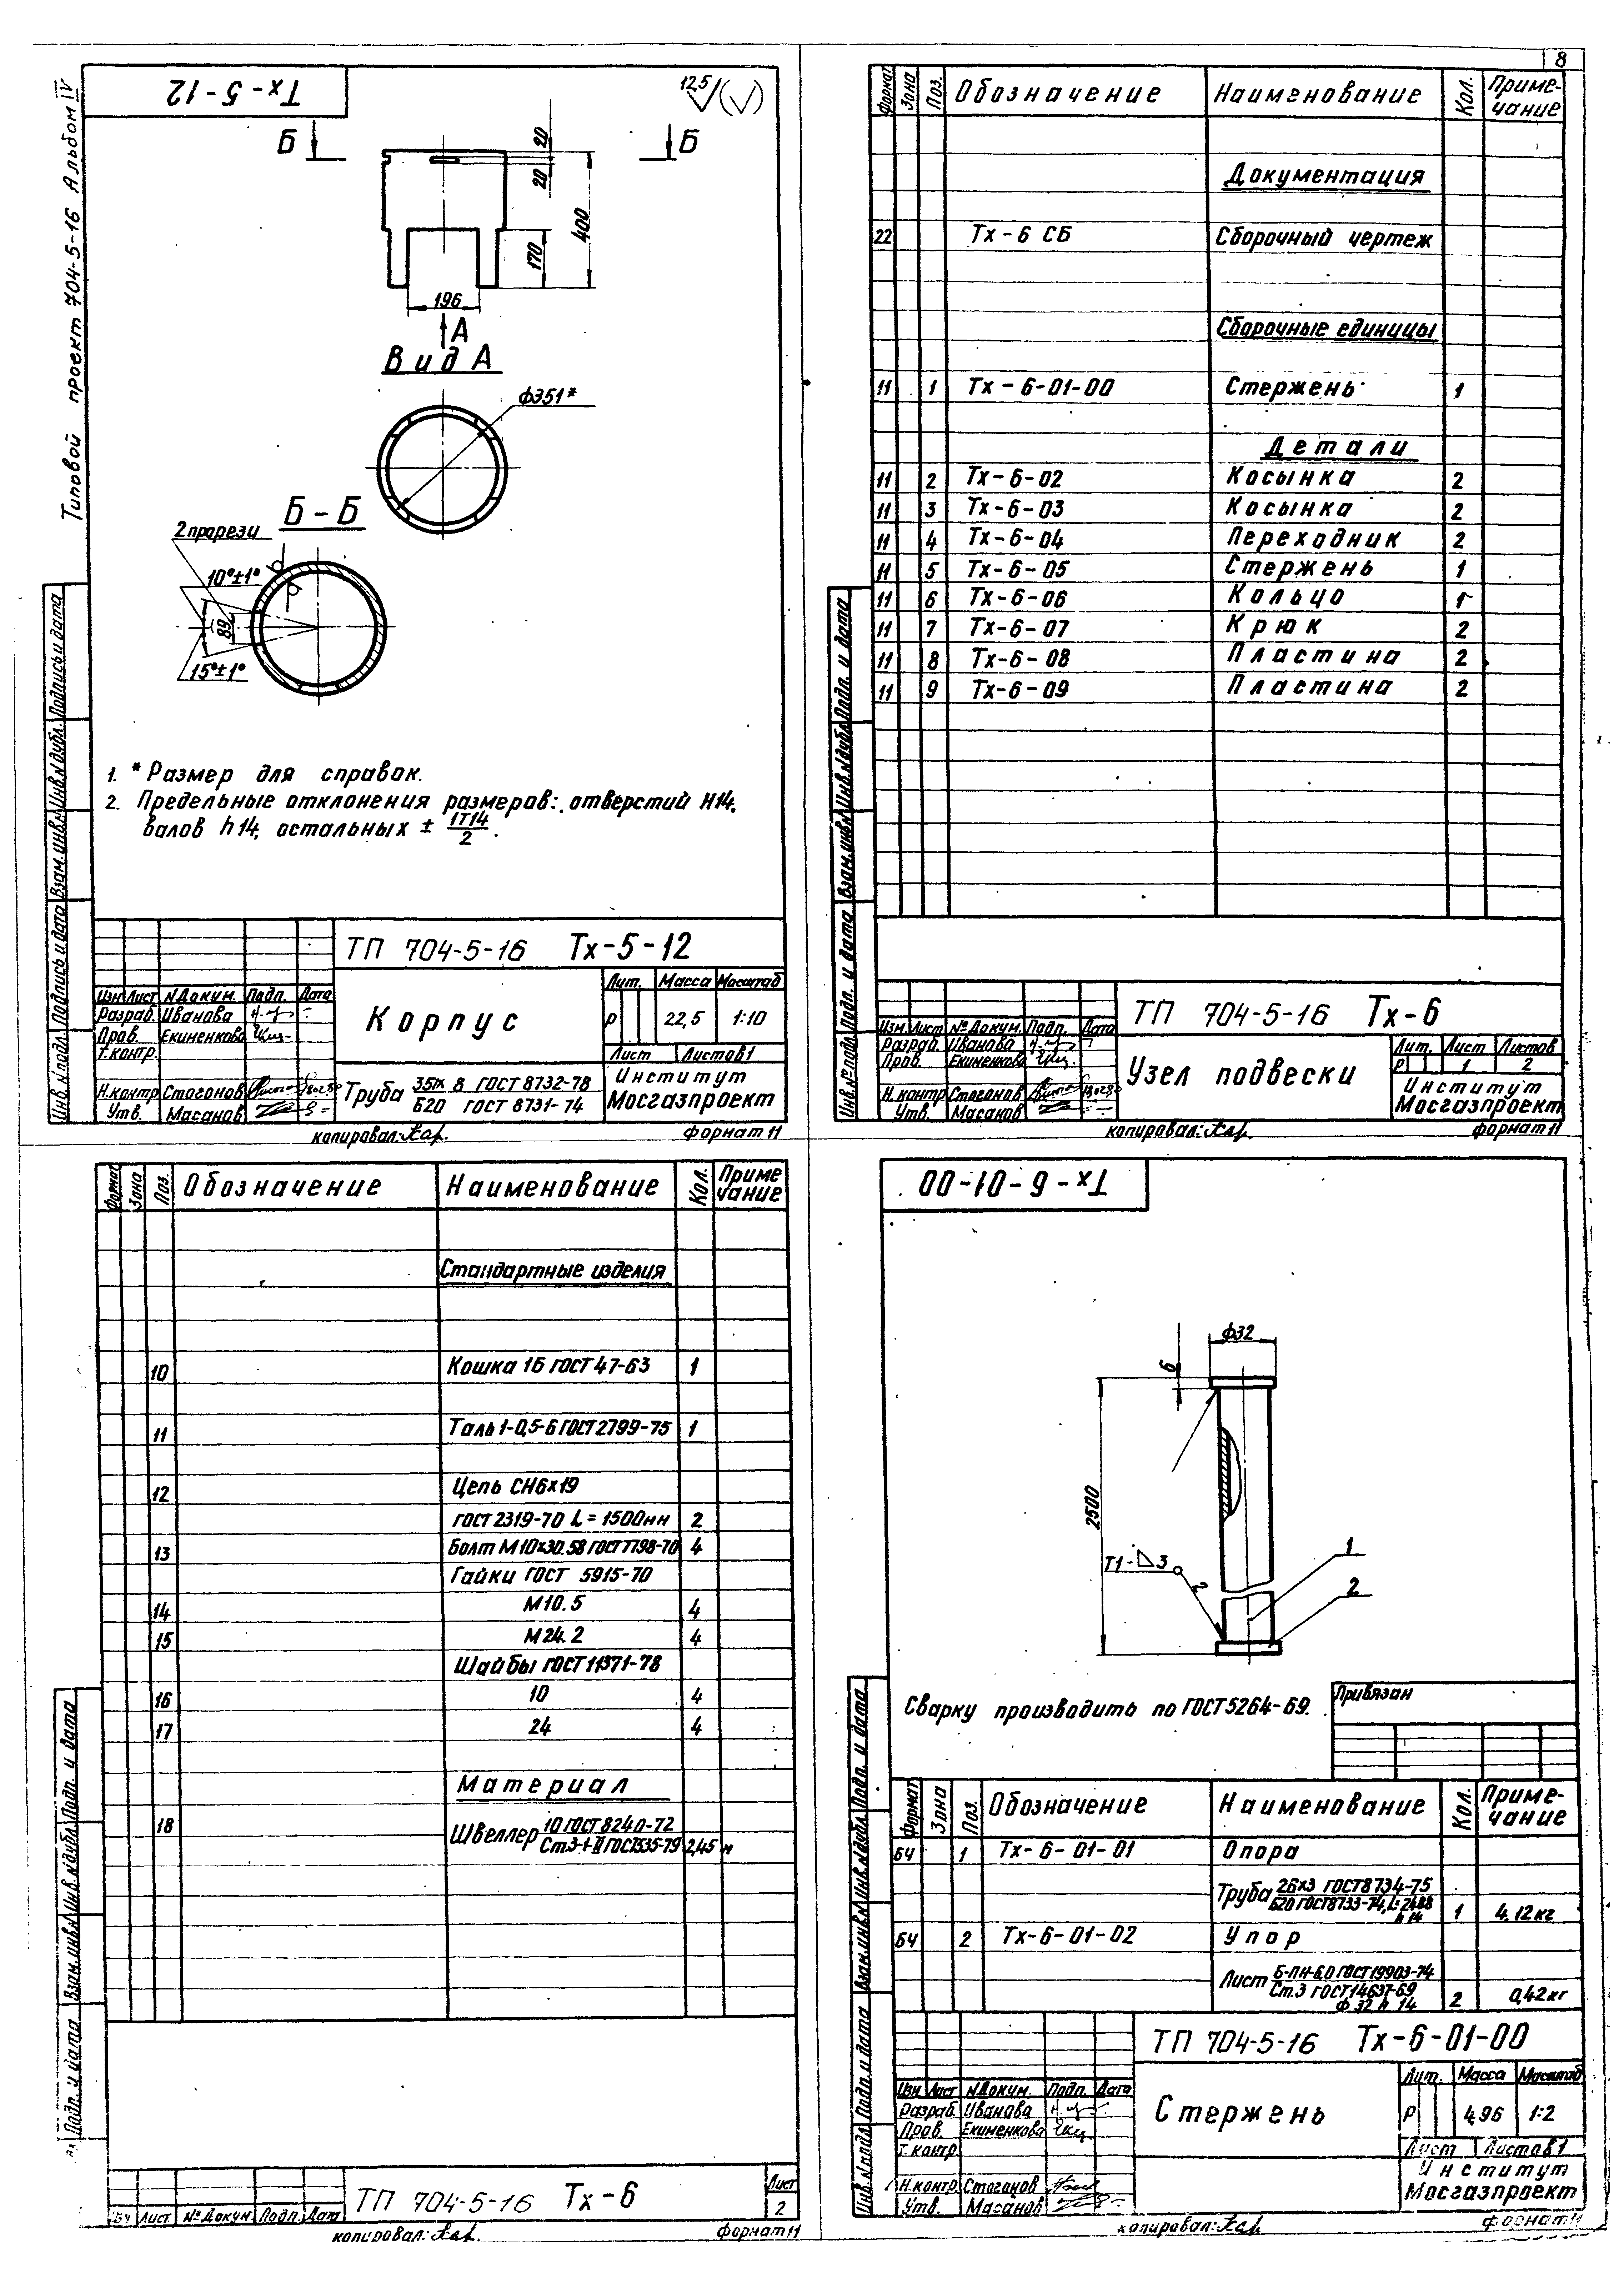 8
Типовой проект 704-5-16 Альбом IV
Тх-5-12
12,5
Б
Б
20
20
400
170
196
А
Вид А
ф351*
Б-Б
2 прорези
10°±1°
89
15°±1°
1. *Размер для справок.
2. Предельные отклонения размеров: отверстий Н14,
валов h14, остальных ± IT14/2.
Инв.№подл. Подпись и дата Взам.инв.№ Инв.№дубл. Подпись и дата
ТП 704-5-16 Тх-5-12
Изм. Лист №Докум. Подп. Дата
Разраб. Иванова
Пров. Екименкова
Т.контр.
Н.контр. Стогонов
Утв. Масанов
Корпус
Лит. Масса Масштаб
Р 22,5 1:10
Лист Листов 1
Труба 351х8 ГОСТ 8732-78
Б20 ГОСТ 8731-74
Институт
Мосгазпроект
копировал:
формат 11
Формат Зона Поз. Обозначение Наименование Кол. Примечание
Документация
22 Тх-6 СБ Сборочный чертеж
Сборочные единицы
11 1 Тх-6-01-00 Стержень 1
Детали
11 2 Тх-6-02 Косынка 2
11 3 Тх-6-03 Косынка 2
11 4 Тх-6-04 Переходник 2
11 5 Тх-6-05 Стержень 1
11 6 Тх-6-06 Кольцо 1
11 7 Тх-6-07 Крюк 2
11 8 Тх-6-08 Пластина 2
11 9 Тх-6-09 Пластина 2
Инв.№подл. Подп. и дата Взам.инв.№ Инв.№дубл. Подп. и дата
ТП 704-5-16 Тх-6
Изм. Лист №Докум. Подп. Дата
Разраб. Иванова
Пров. Екименкова
Н.контр. Стогонов
Утв. Масанов
Узел подвески
Лит. Лист Листов
Р 1 2
Институт
Мосгазпроект
копировал:
формат 11
Формат Зона Поз. Обозначение Наименование Кол. Примечание
Стандартные изделия
10 Кошка 1Б ГОСТ 47-63 1
11 Таль 1-0,5-6 ГОСТ 2799-75 1
12 Цепь СН6х19
ГОСТ 2319-70 L=1500мм 2
13 Болт М10х30.58 ГОСТ 7798-70 4
Гайки ГОСТ 5915-70
14 М10.5 4
15 М24.2 4
Шайбы ГОСТ 11371-78
16 10 4
17 24 4
Материал
18 Швеллер 10 ГОСТ 8240-72
Ст.3-1-II ГОСТ 535-79 2,45 м
Подп. и дата Взам.инв.№ Инв.№дубл. Подп. и дата
Лист №Докум. Подп. Дата
ТП 704-5-16 Тх-6
Лист
2
копировал:
формат 11
Тх-6-01-00
ф32
6
2500
Т1-⊿3
2
1
2
Сварку производить по ГОСТ 5264-69.
Привязан
Формат Зона Поз. Обозначение Наименование Кол. Примечание
БЧ 1 Тх-6-01-01 Опора
Труба 26х3 ГОСТ 8734-75
Б20 ГОСТ 8733-74, L=2488
h 14 1 4,12кг
БЧ 2 Тх-6-01-02 Упор
Лист Б-ПН-6,0 ГОСТ 19903-74
Ст.3 ГОСТ 14637-69
ф 32 h 14 2 0,42кг
Инв.№подл. Подп. и дата Взам.инв.№ Инв.№дубл. Подп. и дата
ТП 704-5-16 Тх-6-01-00
Изм. Лист №Докум. Подп. Дата
Разраб. Иванова
Пров. Екименкова
Т.контр.
Н.контр. Стогонов
Утв. Масанов
Стержень
Лит. Масса Масштаб
Р 4,96 1:2
Лист Листов 1
Институт
Мосгазпроект
копировал:
формат 11